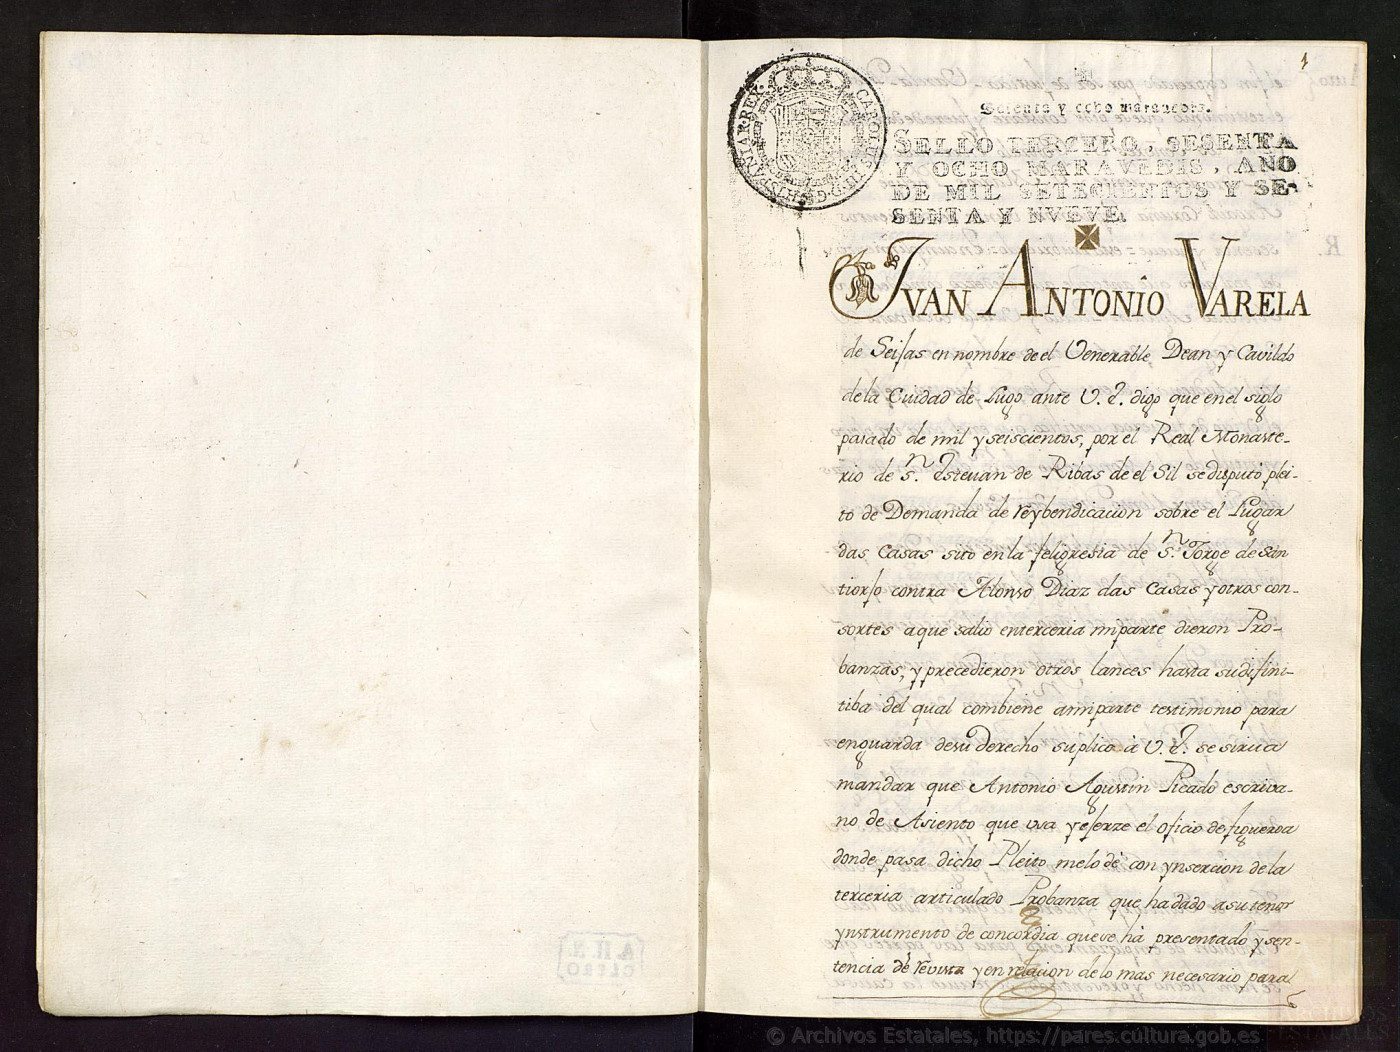 1
Sesenta y ocho maravedis.
SELLO TERCERO, SESENTA
Y OCHO MARAVEDIS, AÑO
DE MIL SETECIENTOS Y SE-
SENTA Y NVEVE.
CAROLUS III D. G. HISPANIAR. REX
JVAN ANTONIO VARELA
de Seijas en nombre de el Venerable Dean y Cavildo
de la Cuidad de Lugo ante V. E. digo que en el siglo
pasado de mil y seiscientos, por el Real Monaste-
rio de Sn. Estevan de Ribas de el Sil se disputó plei-
to de Demanda de reybendicacion sobre el Lugar
das Casas sito en la feligresia de Sn. Jorge de San
tiorjo contra Alonso Diaz das Casas y otros con-
sortes a que salio en terceria mi parte dieron Pro-
banzas, y precedieron otros lances hasta su difini-
tiba del qual combiene a mi parte testimonio para
en guarda de su Derecho suplico à V. E. se sirua
mandar que Antonio Agustin Picado escriva-
no de Asiento que usa y ejerze el oficio de figueroa
donde pasa dicho Pleito me lo dè con ynsercion de la
terceria articulado Probanza que ha dado a su tenor
ynstrumento de concordia que se hà presentado y sen-
tencia dè revista y en relacion de lo mas necesario para
A.H.N.
CLERO
© Archivos Estatales, https://pares.cultura.gob.es